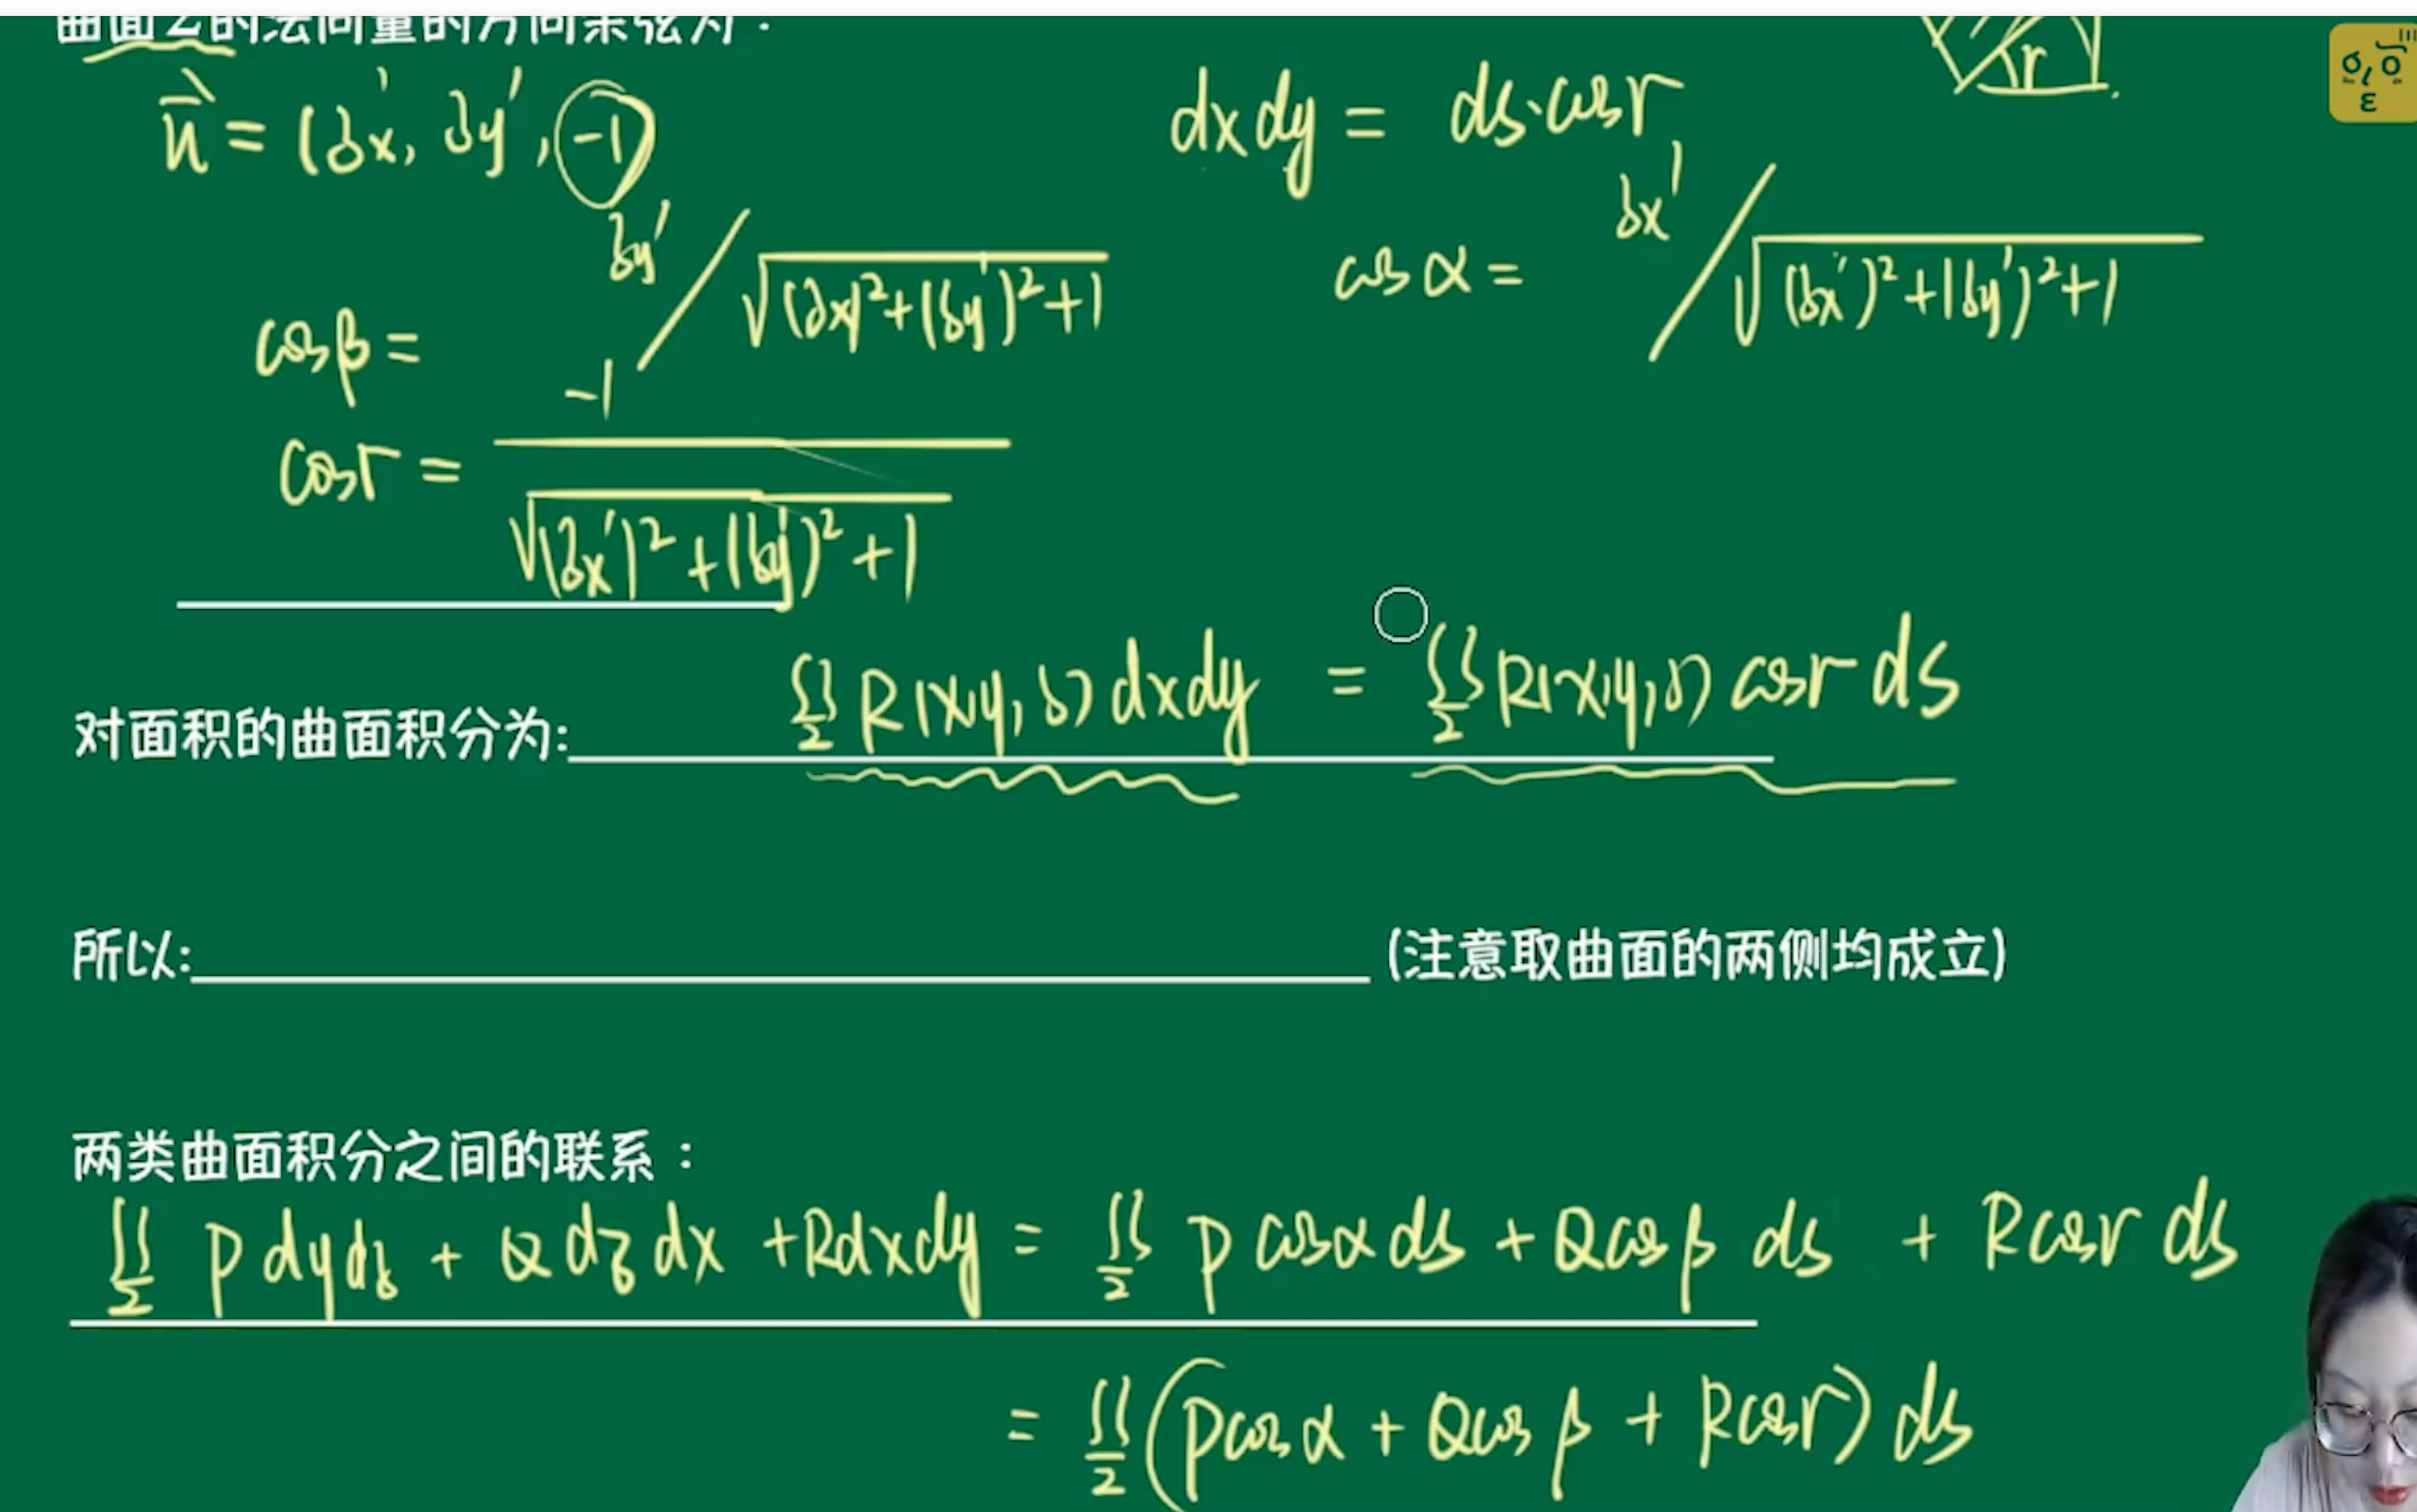 曲面Σ的法向量的方向余弦为：
n⃗ = (zx', zy', -1)
dxdy = ds·cosr
cosβ = zy' / √(zx)²+(zy')²+1
cosα = zx' / √(zx')²+(zy')²+1
cosr = -1 / √(zx')²+(zy')²+1
对面积的曲面积分为: ∬Σ R(x,y,z) dxdy = ∬Σ R(x,y,z) cosr ds
所以: (注意取曲面的两侧均成立)
两类曲面积分之间的联系：
∬Σ P dydz + Q dz dx + Rdxdy = ∬Σ P cosα ds + Qcosβ ds + Rcosr ds
= ∬Σ (Pcosα + Qcosβ + Rcosr) ds